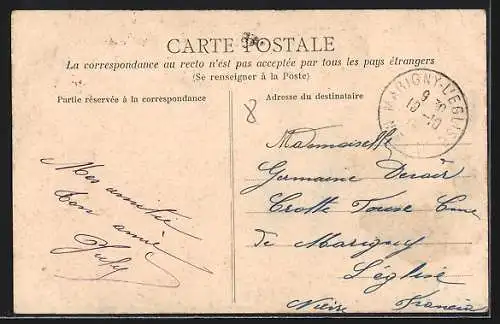 CARTE POSTALE
La correspondance au recto n'est pas acceptée par tous les pays étrangers
(Se renseigner à la Poste)
Partie réservée à la correspondance
Adresse du destinataire
8
MARIGNY-L'EGLISE
9
10 -10
Mes amitié
Ton amie
Mademoiselle
Germaine
Crotte
de Marigny
L'église
Nièvre Francia